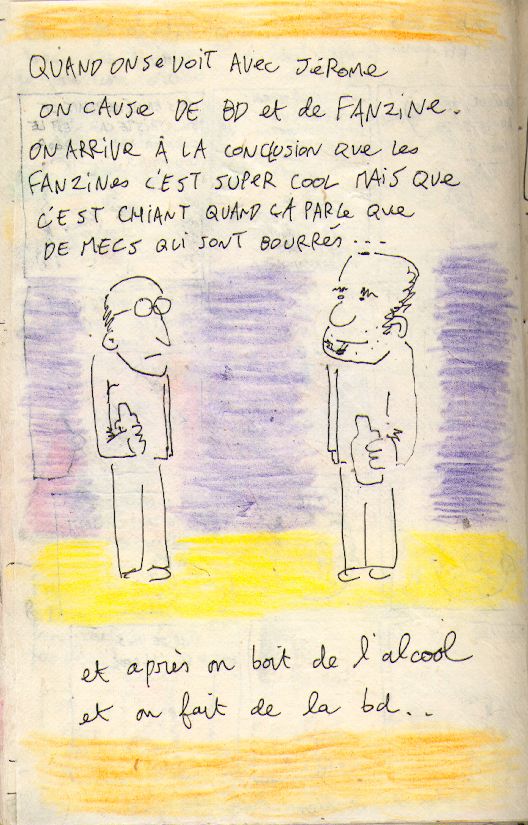 QUAND ON SE VOIT AVEC JéROME
ON CAUSE DE BD et de FANZINE.
ON ARRIVE À LA CONCLUSION QUE LES
FANZINES C'EST SUPER COOL MAIS QUE
C'EST CHIANT QUAND ÇA PARLE QUE
DE MECS QUI SONT BOURRÉS...
et après on boit de l'alcool
et on fait de la bd..